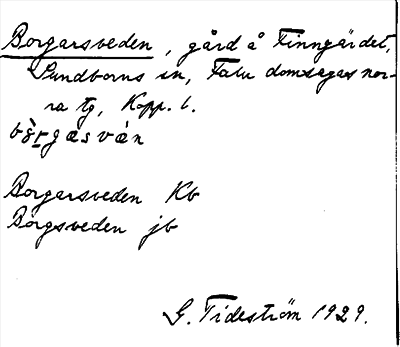 Borgarsveden, gård å Finngärdet,
Sundborns sn, Falu domsagas nor-
ra tg, Kopp. l.
bòrgasvén
Borgarsveden Kb
Borgsveden jb
G. Tideström 1929.